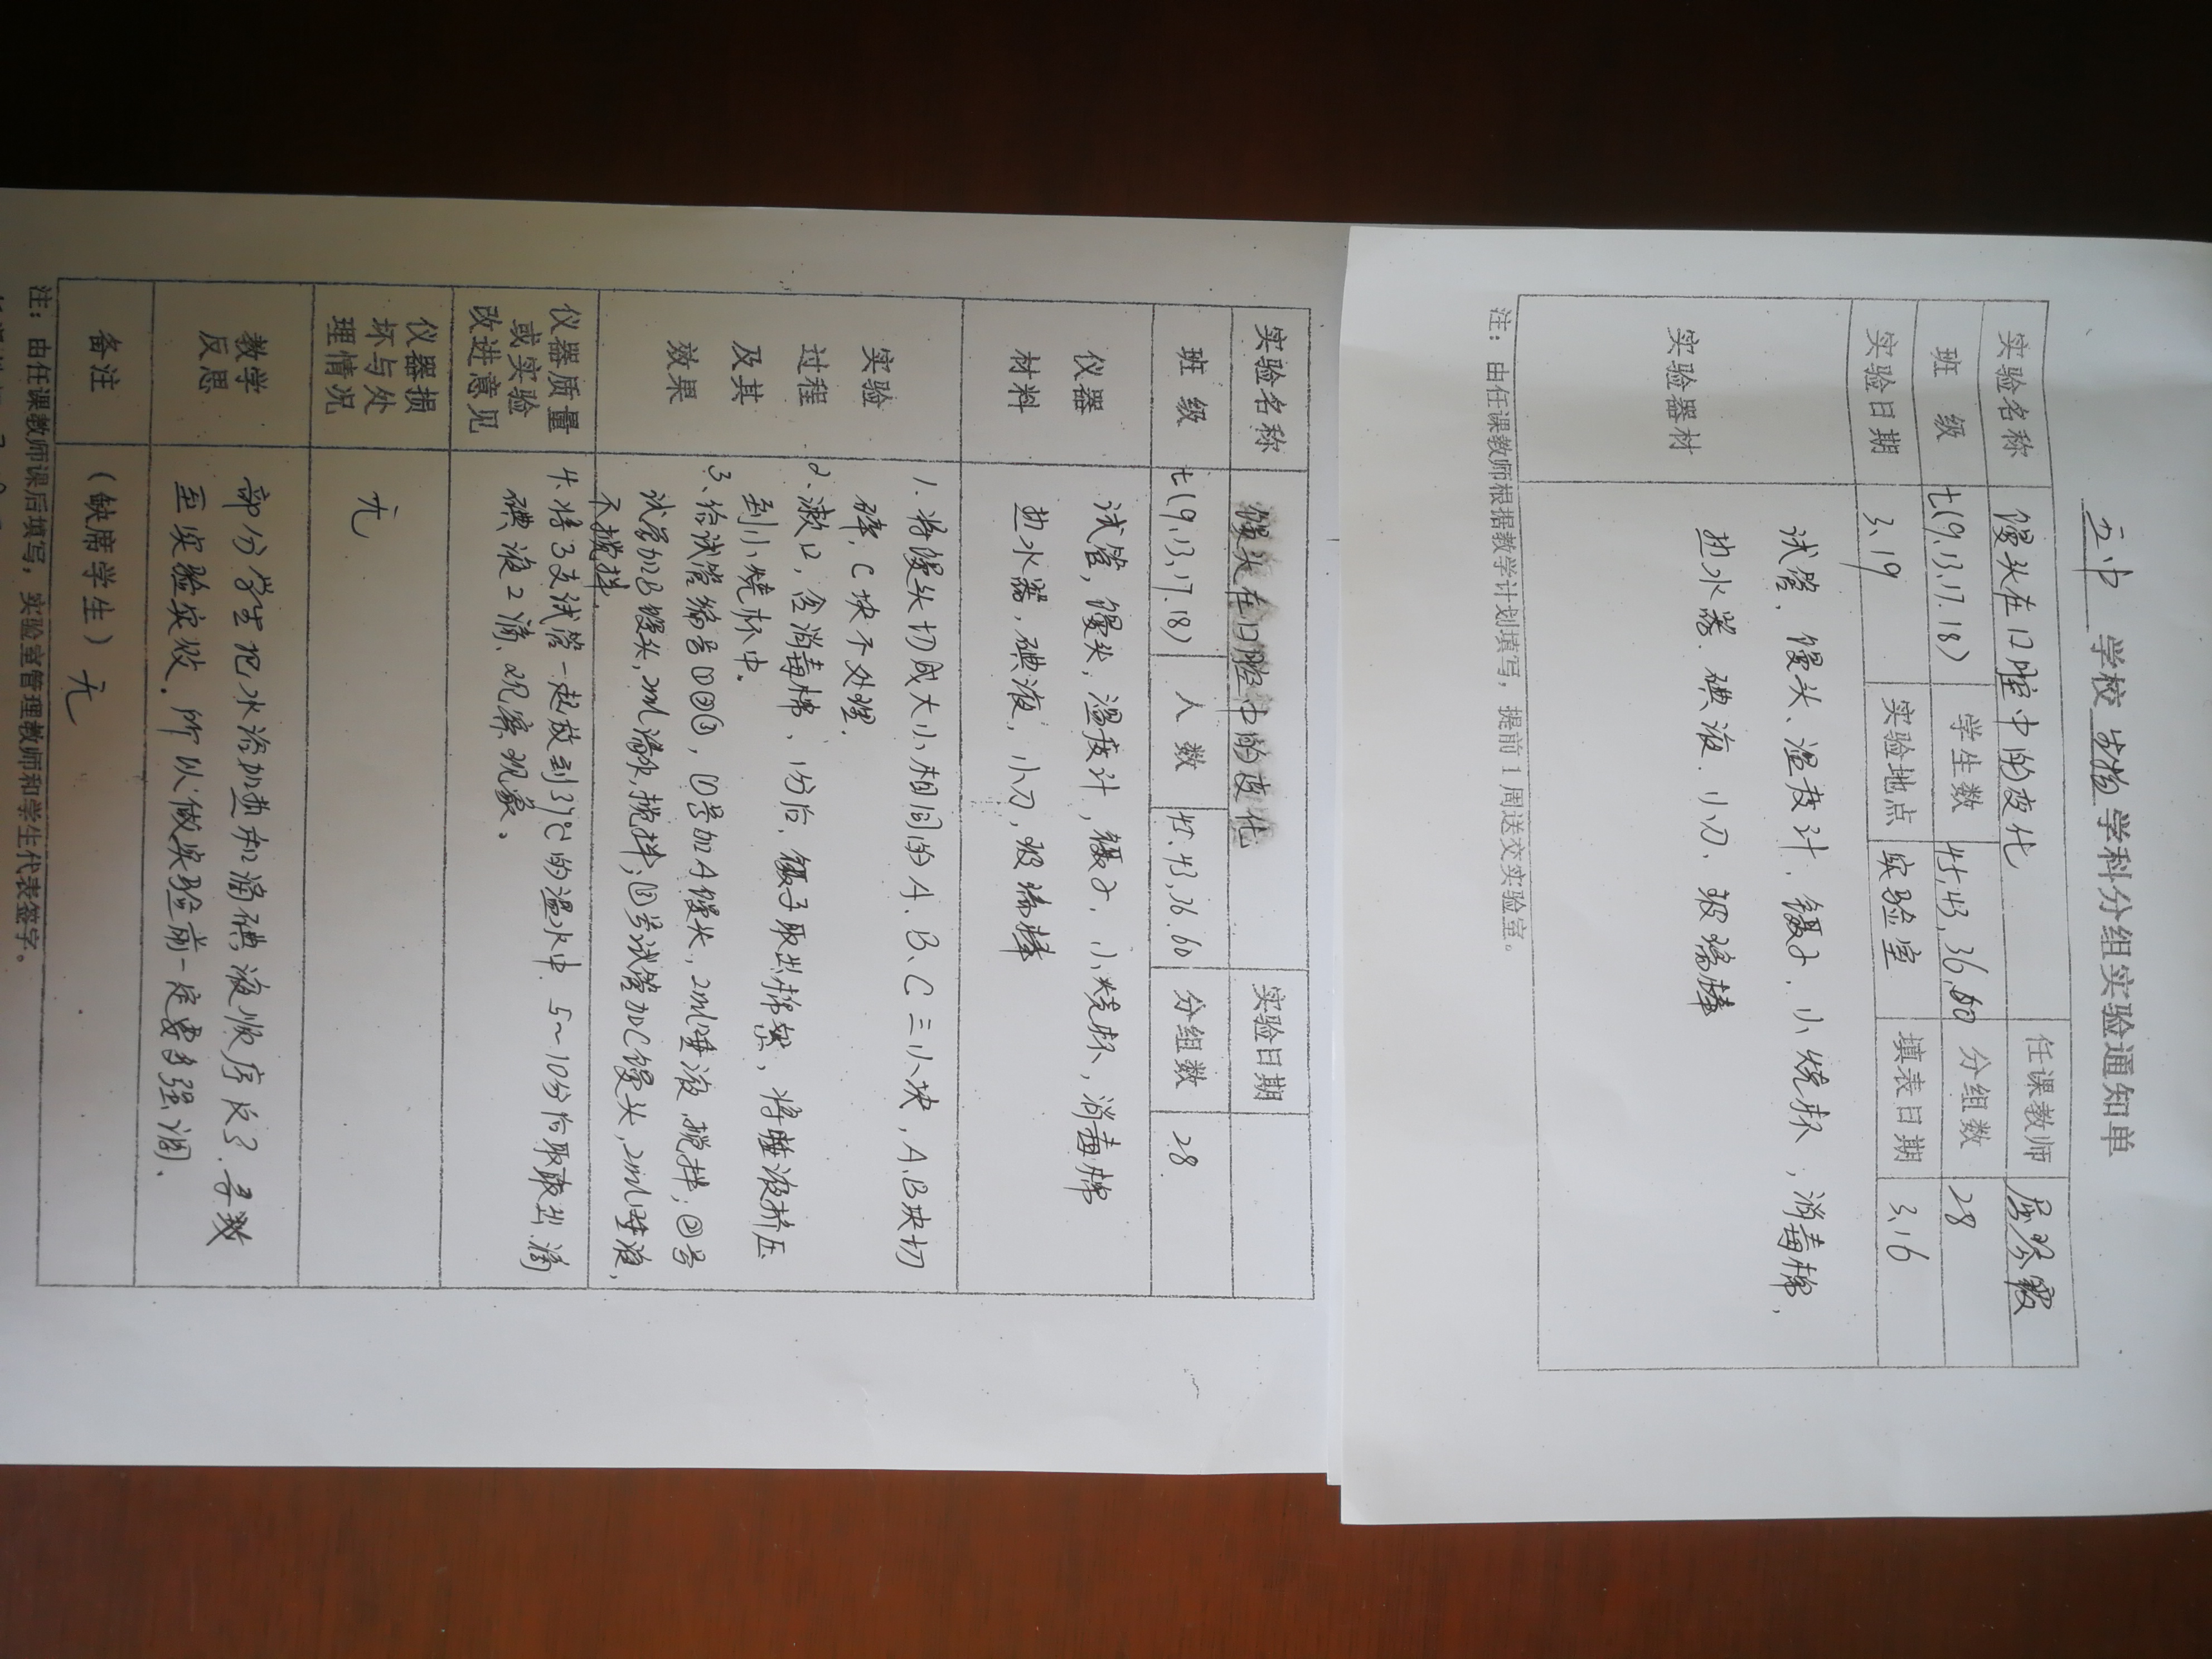 五中 学校 生物 学科分组实验通知单
实验名称 馒头在口腔中的变化 任课教师
班 级 七(9.13.17.18) 学生数 45,43,36,60 分组数 28
实验日期 3.19 实验地点 实验室 填表日期 3.16
实验器材
试管、馒头、温度计、镊子、小烧杯,消毒棉,
热水器、碘液、小刀、玻璃棒
注:由任课教师根据教学计划填写,提前1周送交实验室。
实验名称 馒头在口腔中的变化 实验日期
班 级 七(9.13.17.18) 人 数 45.43,36.60 分组数 28.
仪器
材料
试管,馒头,温度计,镊子,小烧杯,消毒棉
热水器,碘液,小刀,玻璃棒
实验
过程
及其
效果
1.将馒头切成大小相同的A、B、C三小块,A、B块切
碎,C块不处理.
2.漱口,含消毒棉、1分后,镊子取出棉絮,将唾液挤压
到小烧杯中.
3.给试管编号①②③,①号加A馒头,2ml唾液,搅拌;②号
试管加B馒头,2ml清水,搅拌;③号试管加C馒头,2ml唾液,
不搅拌.
仪器质量
或实验
改进意见
4.将3支试管一起放到37℃的温水中 5~10分后取取出.滴
碘液2滴、观察现象。
仪器损
坏与处
理情况
无
教学
反思
部分学生把水浴加热和滴碘液顺序反了.导致
至实验失败.所以做实验前一定要多强调、
备注 (缺席学生) 无
注:由任课教师课后填写,实验室管理教师和学生代表签字。